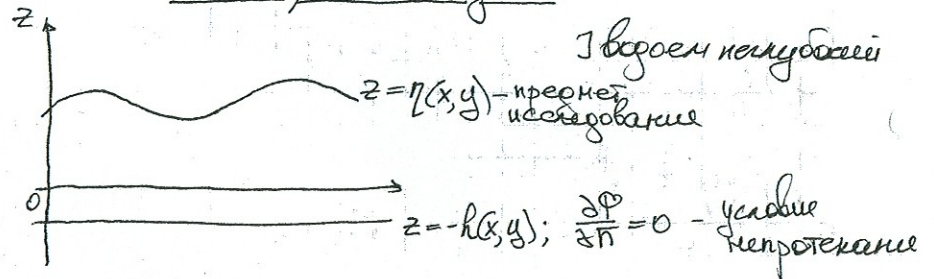 z
Ɪ водоем неглубокий
z = η(x,y) – предмет
исследования
0
z = -h(x,y); ∂φ/∂n = 0 – условие
непротекания